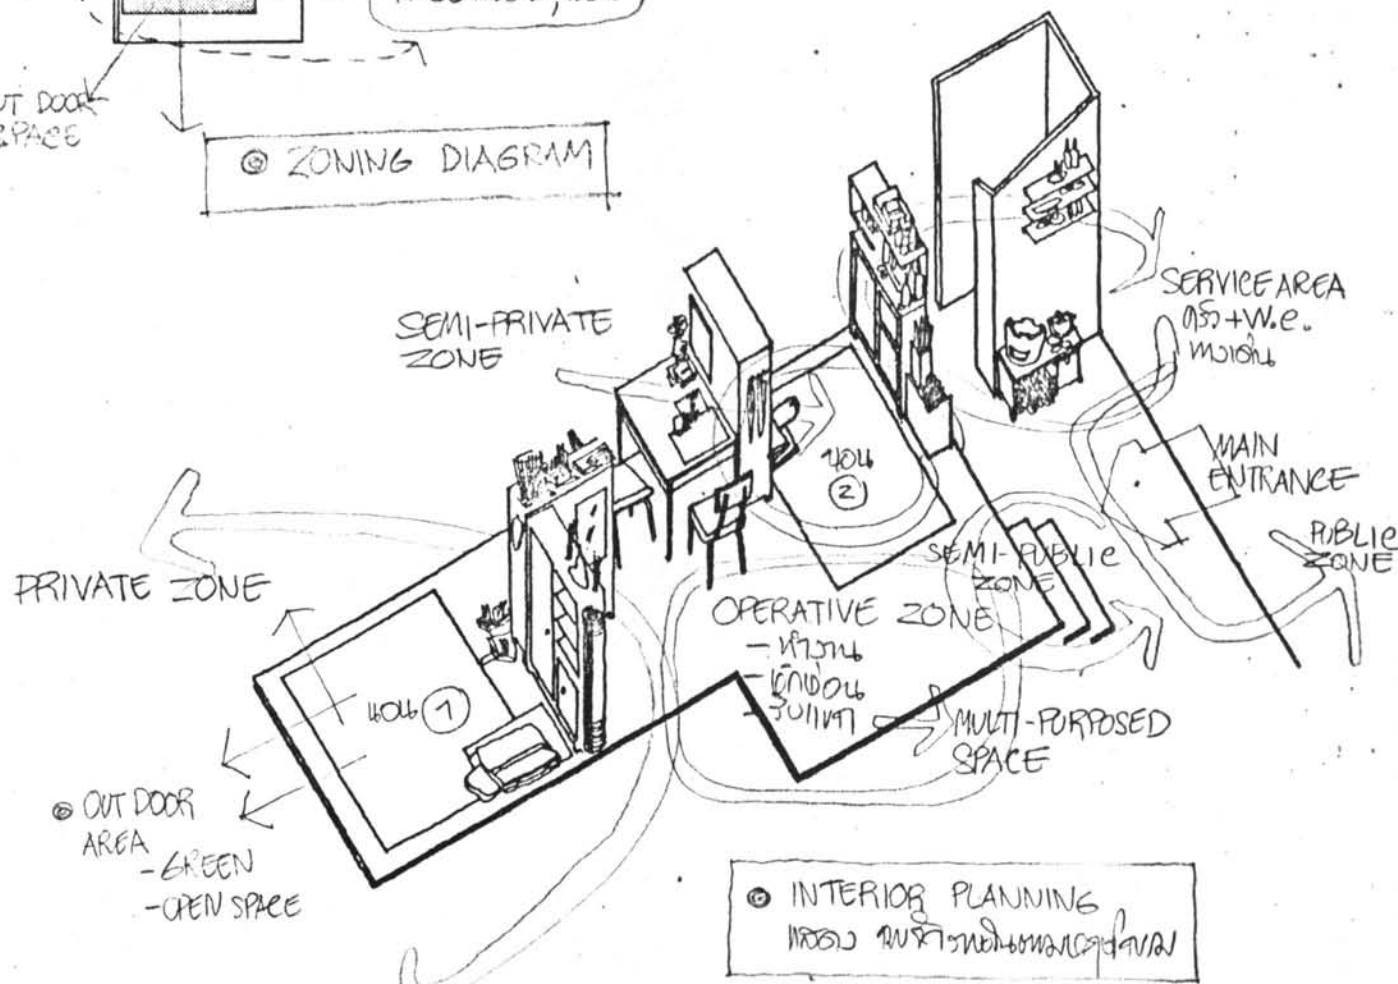 OUT DOOR
SPACE
ZONING DIAGRAM
SEMI-PRIVATE
ZONE
SERVICE AREA
ครัว+W.C.
ทางเดิน
MAIN
ENTRANCE
PUBLIC
ZONE
นอน
2
SEMI-PUBLIC
ZONE
PRIVATE ZONE
OPERATIVE ZONE
- ทำงาน
- พักผ่อน
- รับแขก
MULTI-PURPOSED
SPACE
นอน 1
OUT DOOR
AREA
- GREEN
- OPEN SPACE
INTERIOR PLANNING
แสดง